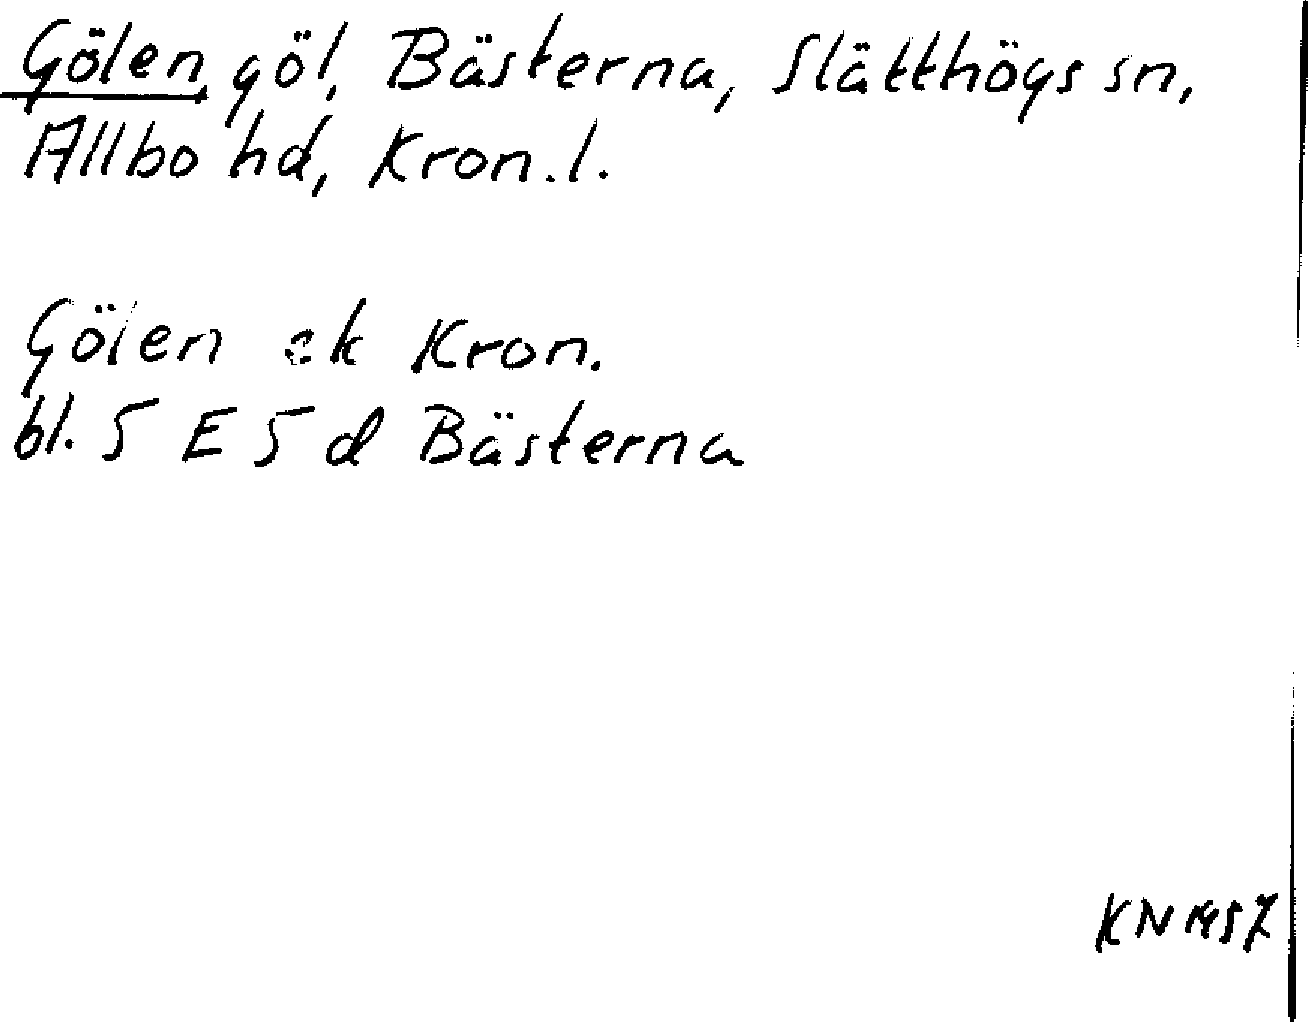 Gölen, göl, Bästerna, Slätthögs sn,
Allbo hd, Kron. l.
Gölen ek Kron.
bl. 5 E 5 d Bästerna
KN